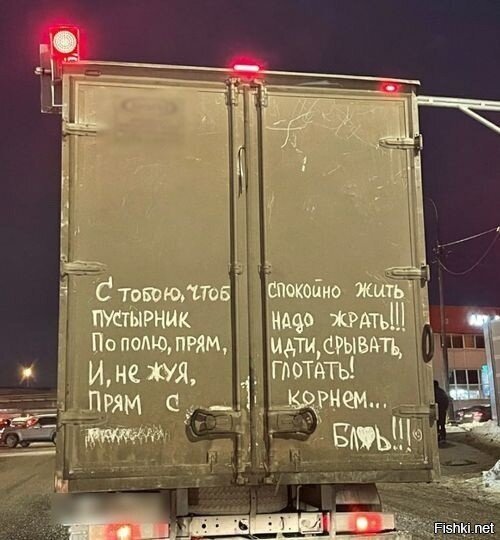 С тобою, чтоб спокойно жить
пустырник надо жрать!!!
По полю, прям, идти, срывать,
И, не жуя, глотать!
прям с корнем...
Бл♥ь!!!
Fishki.net